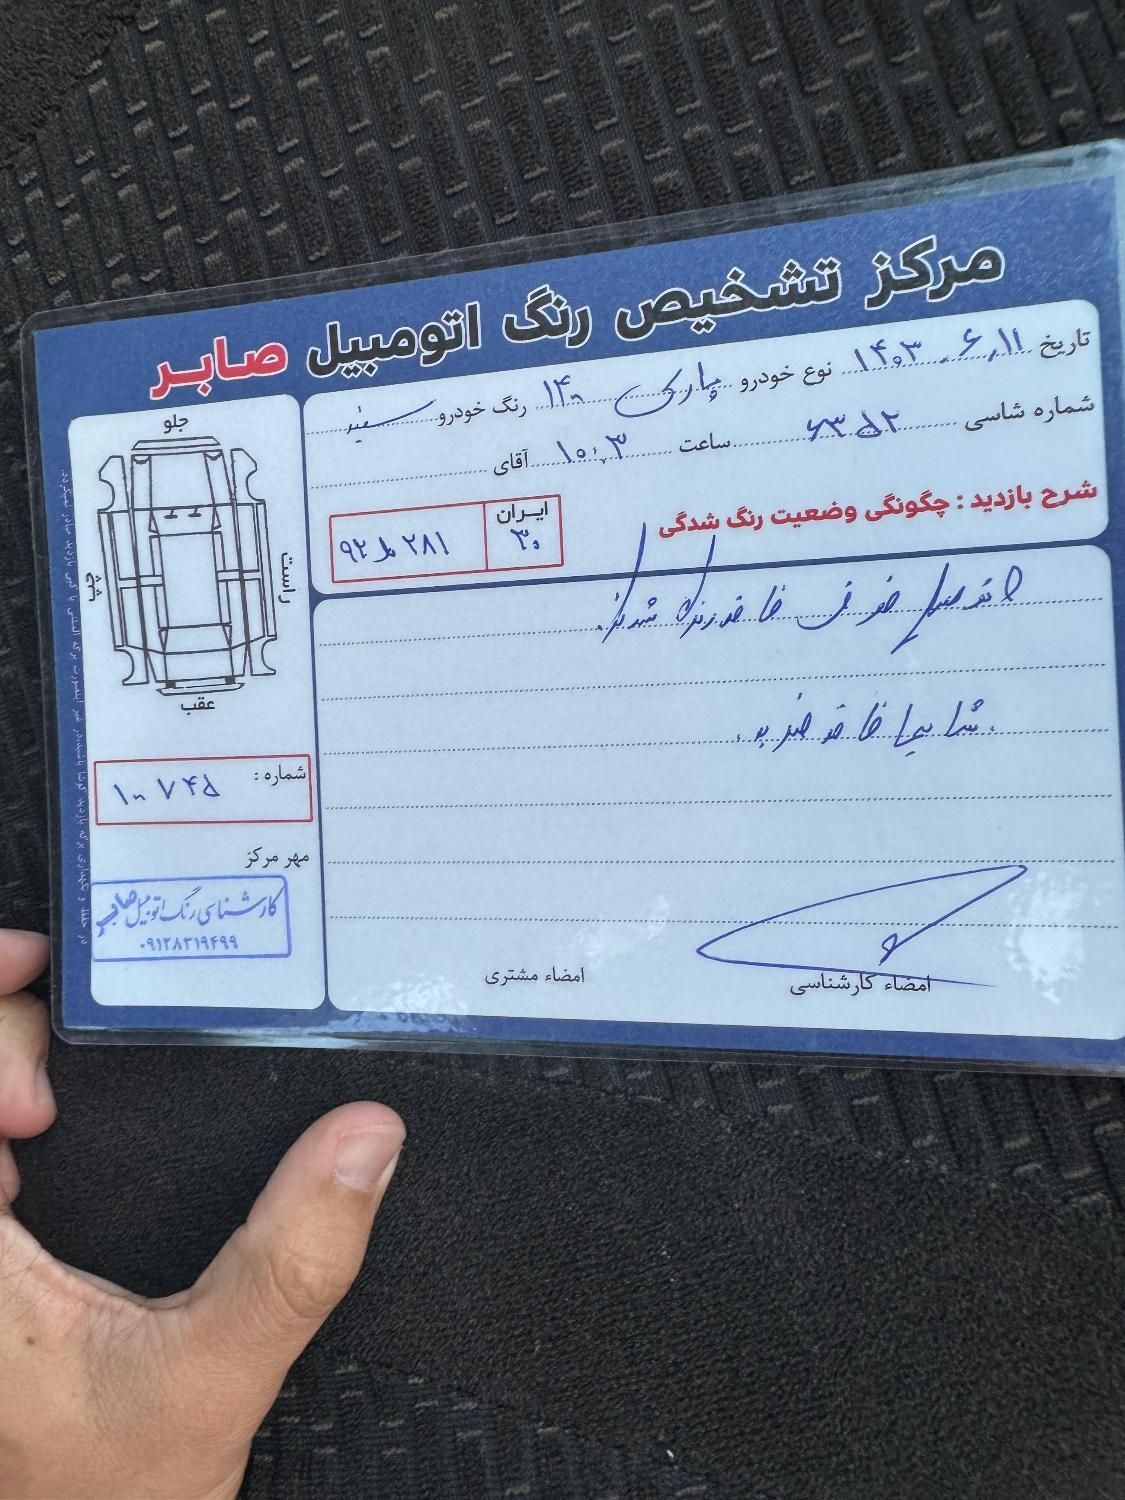 مرکز تشخیص رنگ اتومبیل صابر
تاریخ ۱۴۰۳.۶.۱۱ نوع خودرو پارس ۱۴۰۰ رنگ خودرو سفید
شماره شاسی ۶۳۵۲ ساعت ۱۰:۳ آقای
شرح بازدید : چگونگی وضعیت رنگ شدگی
ایران
۳۰
۹۲ ۲۸۱
اتومبیل فوق فاقد رنگ شدگی
شاسیها فاقد ضربه.
جلو
راست
چپ
عقب
شماره : ۱۰۷۴۵
مهر مرکز
کارشناسی رنگ اتومبیل صابر
۰۹۱۲۸۳۱۹۴۹۹
امضاء کارشناسی
امضاء مشتری